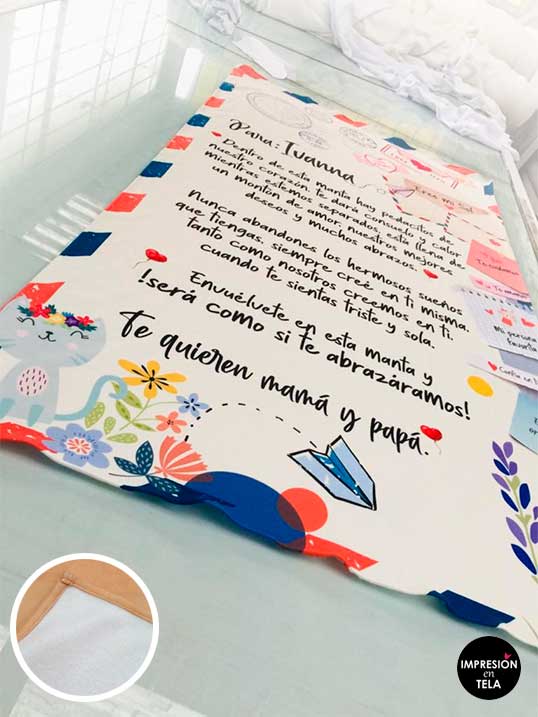 Para: Ivanna
Dentro de esta manta hay pedacitos de
nuestro corazón, te dará consuelo y calor
mientras estemos separados, está llena de
un montón de amor, nuestros mejores
deseos y muchos abrazos.
Nunca abandones los hermosos sueños
que tiengas, siempre creé en ti misma.
tanto como nosotros creemos en ti.
cuando te sientas triste y sola.
Envuélvete en esta manta y
!será como si te abrazáramos!
Te quieren mamá y papá.
Eres mi sol
Mi persona
favorita
IMPRESION
en
TELA